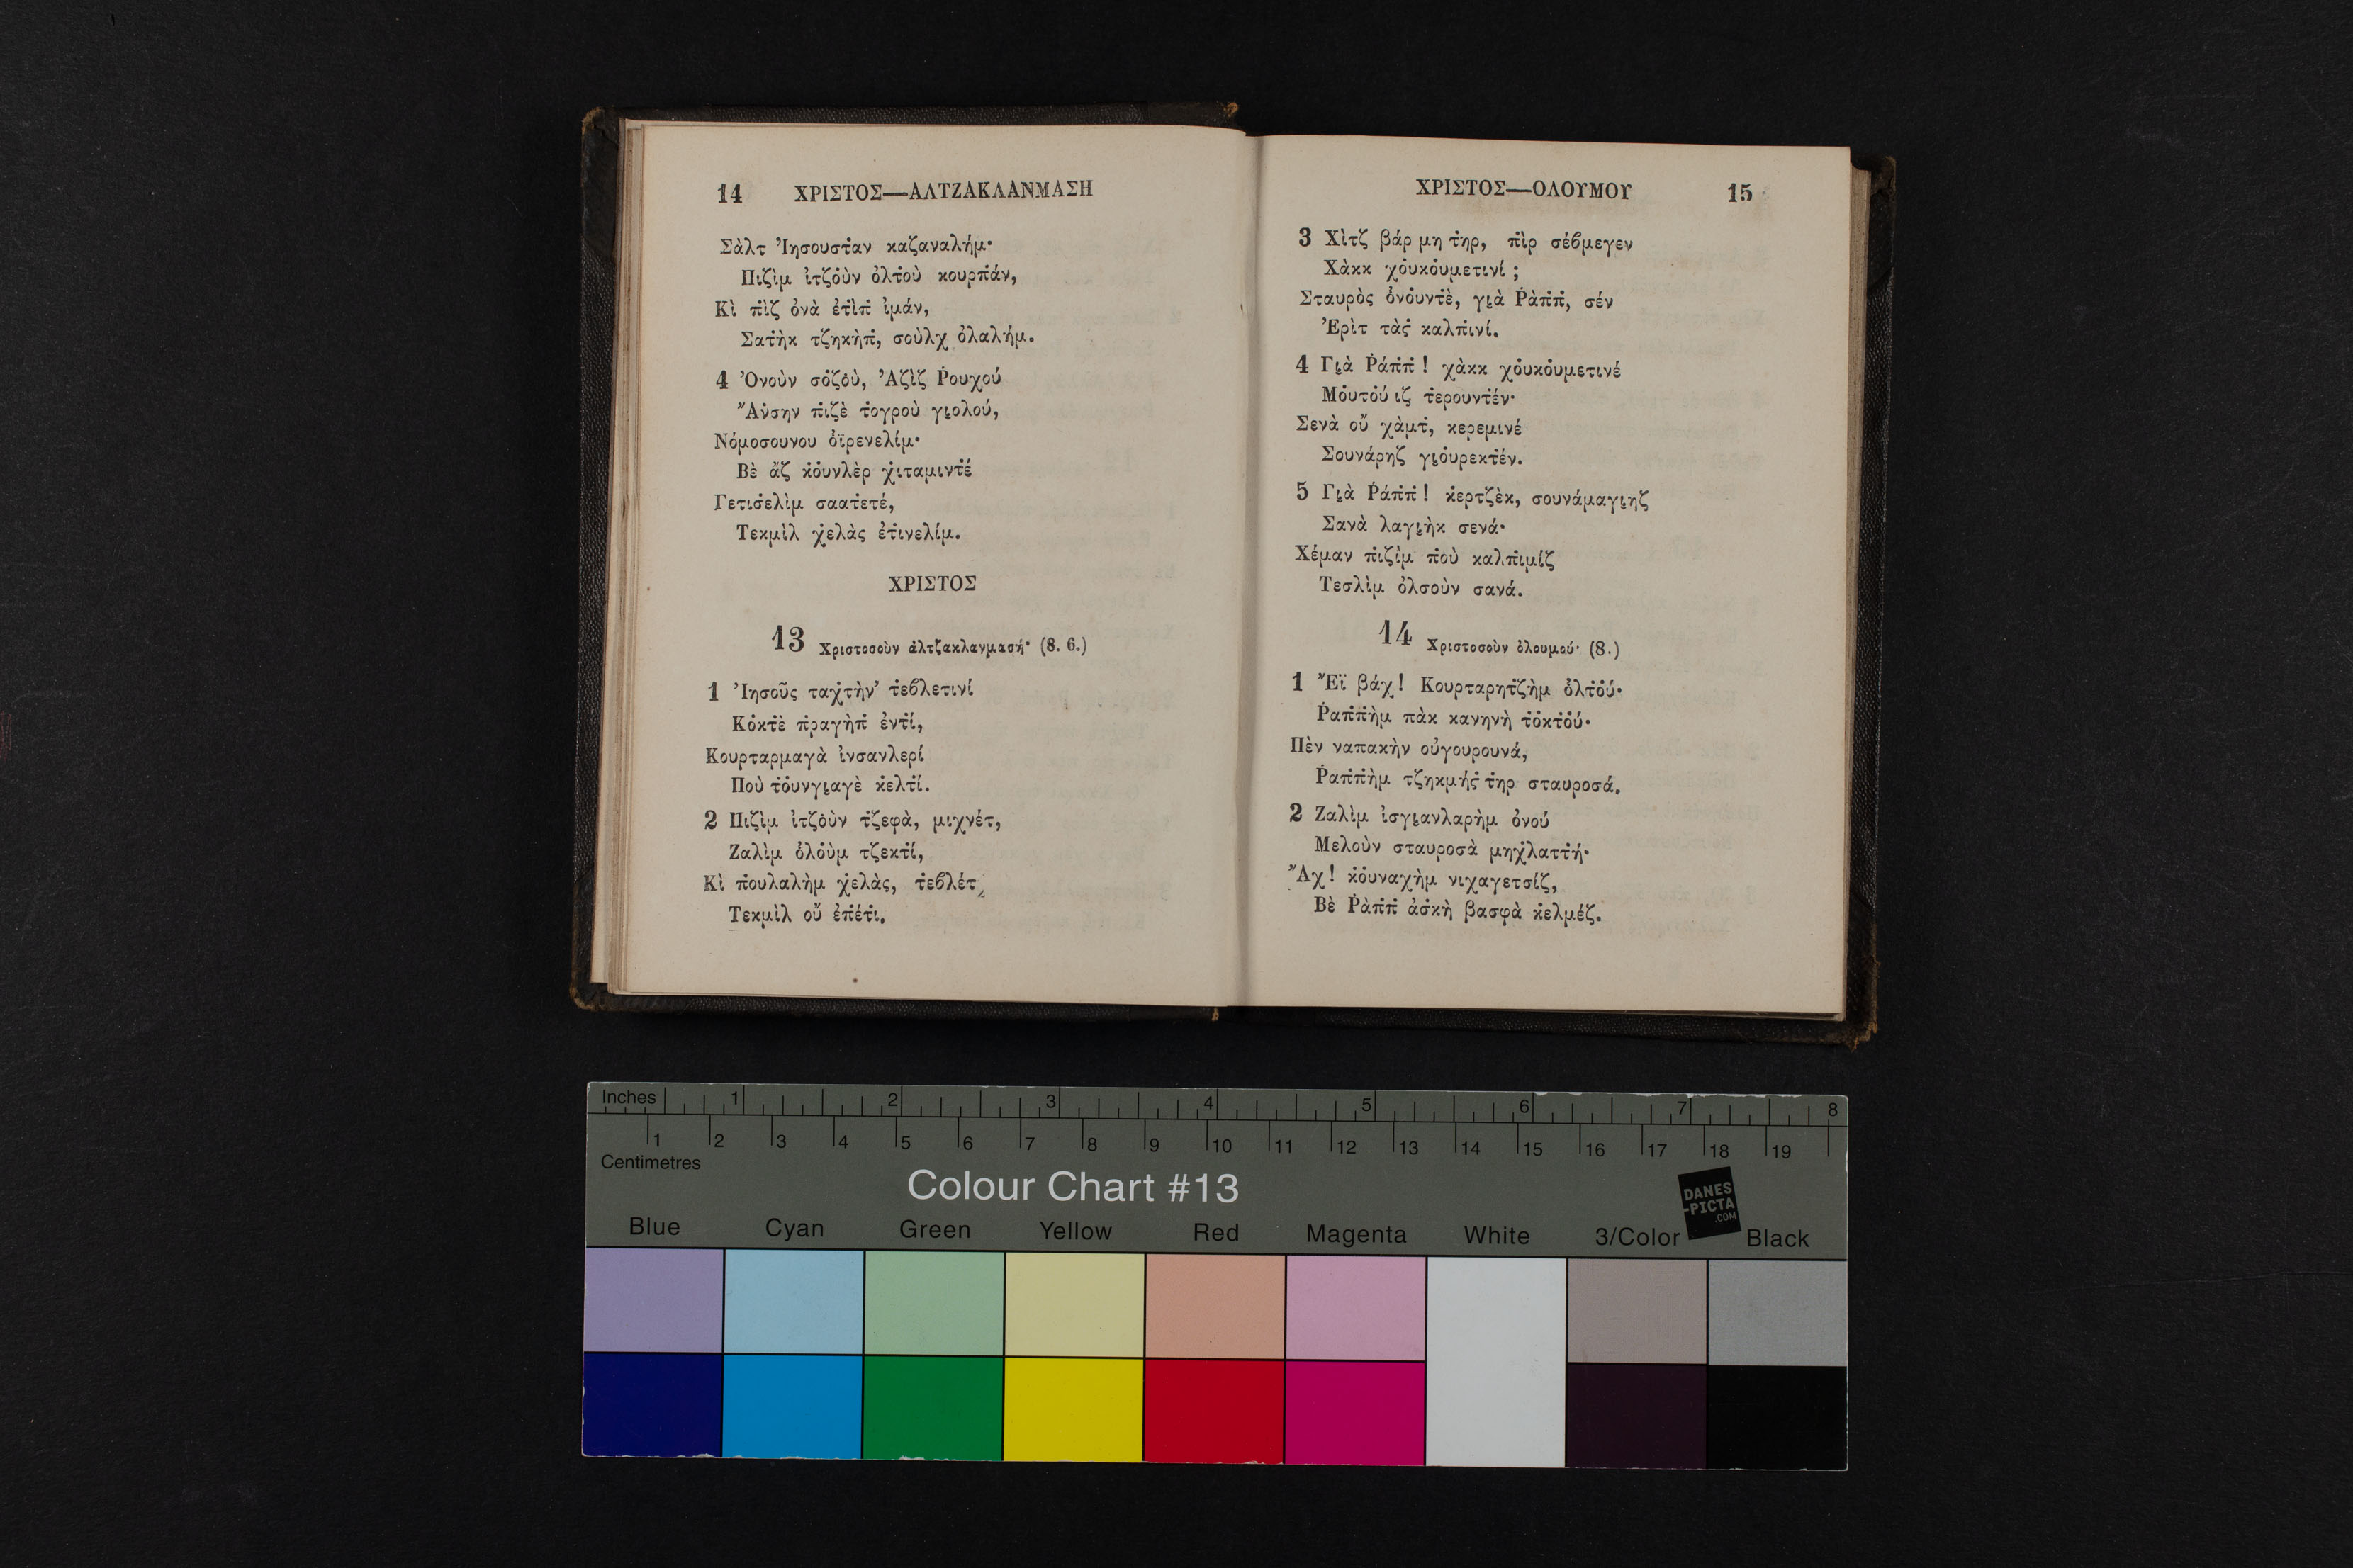 14 ΧΡΙΣΤΟΣ—ΑΛΤΖΑΚΛΑΝΜΑΣΗ
Σὰλτ Ἰησουστ̇αν καζαναλήμ·
Πιζὶμ ἰτζο̇ὺν ὀλτ̇οὺ κουρπ̇άν,
Κὶ π̇ὶζ ὀνὰ ἐτ̇ὶπ̇ ἰμάν,
Σατ̇ὴκ τζηκὴπ̇, σοὺλχ ὀλαλήμ.
4 Ὀνοὺν σο̇ζο̇ὺ, Ἀζὶζ Ῥουχού
Ἄν̇σην π̇ιζὲ τ̇ογροὺ γι̣ολού,
Νόμοσουνου ὀϊρενελίμ·
Βὲ ἂζ κ̇ο̇υνλὲρ χ̇ιταμιντ̇έ
Γετισ̇ελὶμ σαατ̇ετέ,
Τεκμὶλ χ̇ελὰς ἐτ̇ινελίμ.
ΧΡΙΣΤΟΣ
13 Χριστοσοὺν ἀλτζακλανμασή· (8. 6.)
1 Ἰησοῦς ταχ̇τὴν' τ̇εβλετινί
Κο̇κτ̇ὲ π̇ραγὴπ̇ ἐντ̇ί,
Κουρταρμαγὰ ἰνσανλερί
Π̇οὺ τ̇ο̇υνγι̣αγὲ κ̇ελτ̇ί.
2 Π̇ιζὶμ ἰτζο̇ὺν τ̇ζεφὰ, μιχνέτ,
Ζαλὶμ ὀ̇λο̇ὺμ τζεκτ̇ί,
Κὶ π̇ουλαλὴμ χ̇ελὰς, τ̇εβλέτ,
Τεκμὶλ οὔ ἐπ̇έτ̇ι.
ΧΡΙΣΤΟΣ—ΟΛΟΥΜΟΥ 15
3 Χὶτζ βάρ μη τ̇ηρ, π̇ὶρ σέβμεγεν
Χὰκκ χο̇υκο̇υμετινί ;
Σταυρὸς ὀ̇νο̇υντ̇ὲ, γι̣ὰ Ῥὰπ̇π̇, σέν
Ἐρὶτ τὰσ̇ καλπ̇ινί.
4 Γι̣ὰ Ῥάπ̇π̇ ! χὰκκ χο̇υκο̇υμετινέ
Μο̇υτο̇ύ ιζ τ̇ερουντ̇έν·
Σενὰ οὔ χὰμτ̇, κερεμινέ
Σουνάρηζ γι̣ο̇υρεκτ̇έν.
5 Γι̣ὰ Ῥάπ̇π̇ ! κ̇ερτζὲκ, σουνάμαγι̣ηζ
Σανὰ λαγι̣ὴκ σενά·
Χέμαν π̇ιζὶμ π̇οὺ καλπ̇ιμίζ
Τεσλὶμ ὀλσοὺν σανά.
14 Χριστοσοὺν ὀ̇λουμού· (8.)
1 Ἔϊ βάχ! Κουρταρητ̇ζὴμ ὀ̇λτ̇ο̇ύ·
Ῥαπ̇π̇ὴμ πὰκ κανηνὴ τ̇ο̇κτ̇ο̇ύ·
Πὲν ναπακὴν οὐγουρουνά,
Ῥαπ̇π̇ὴμ τζηκμήσ̇ τ̇ηρ σταυροσά.
2 Ζαλὶμ ἰσγι̣ανλαρὴμ ὀνού
Μελοὺν σταυροσὰ μηχ̇λαττ̇ή·
Ἄχ! κ̇ο̇υναχὴμ νιχαγετσίζ,
Βὲ Ῥὰπ̇π̇ ἀσ̇κὴ βασφὰ κ̇ελμέζ.
Inches 1 2 3 4 5 6 7 8
1 2 3 4 5 6 7 8 9 10 11 12 13 14 15 16 17 18 19
Centimetres
Colour Chart #13
DANES
-PICTA
.COM
Blue Cyan Green Yellow Red Magenta White 3/Color Black